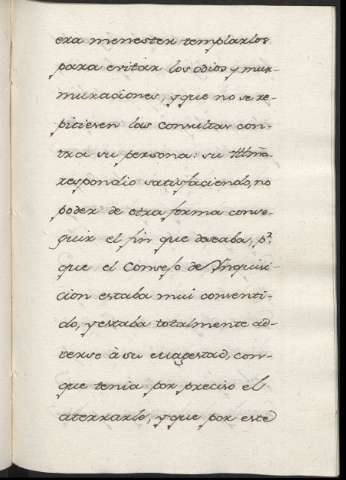 era menester templarlos
para evitar los odios y mur-
muraciones, y que no se re-
pitiesen las consultas con-
tra su persona: su Illmã
respondio satisfaciendo, no
poder de otra forma conse-
guir el fin que deseaba, p.ʳ
que el Consejo de Ynquisi-
cion estaba mui consenti-
do, y estaba totalmente ad-
verso à su Magestad, con-
que tenia por preciso el
aterrarlo, y que por este